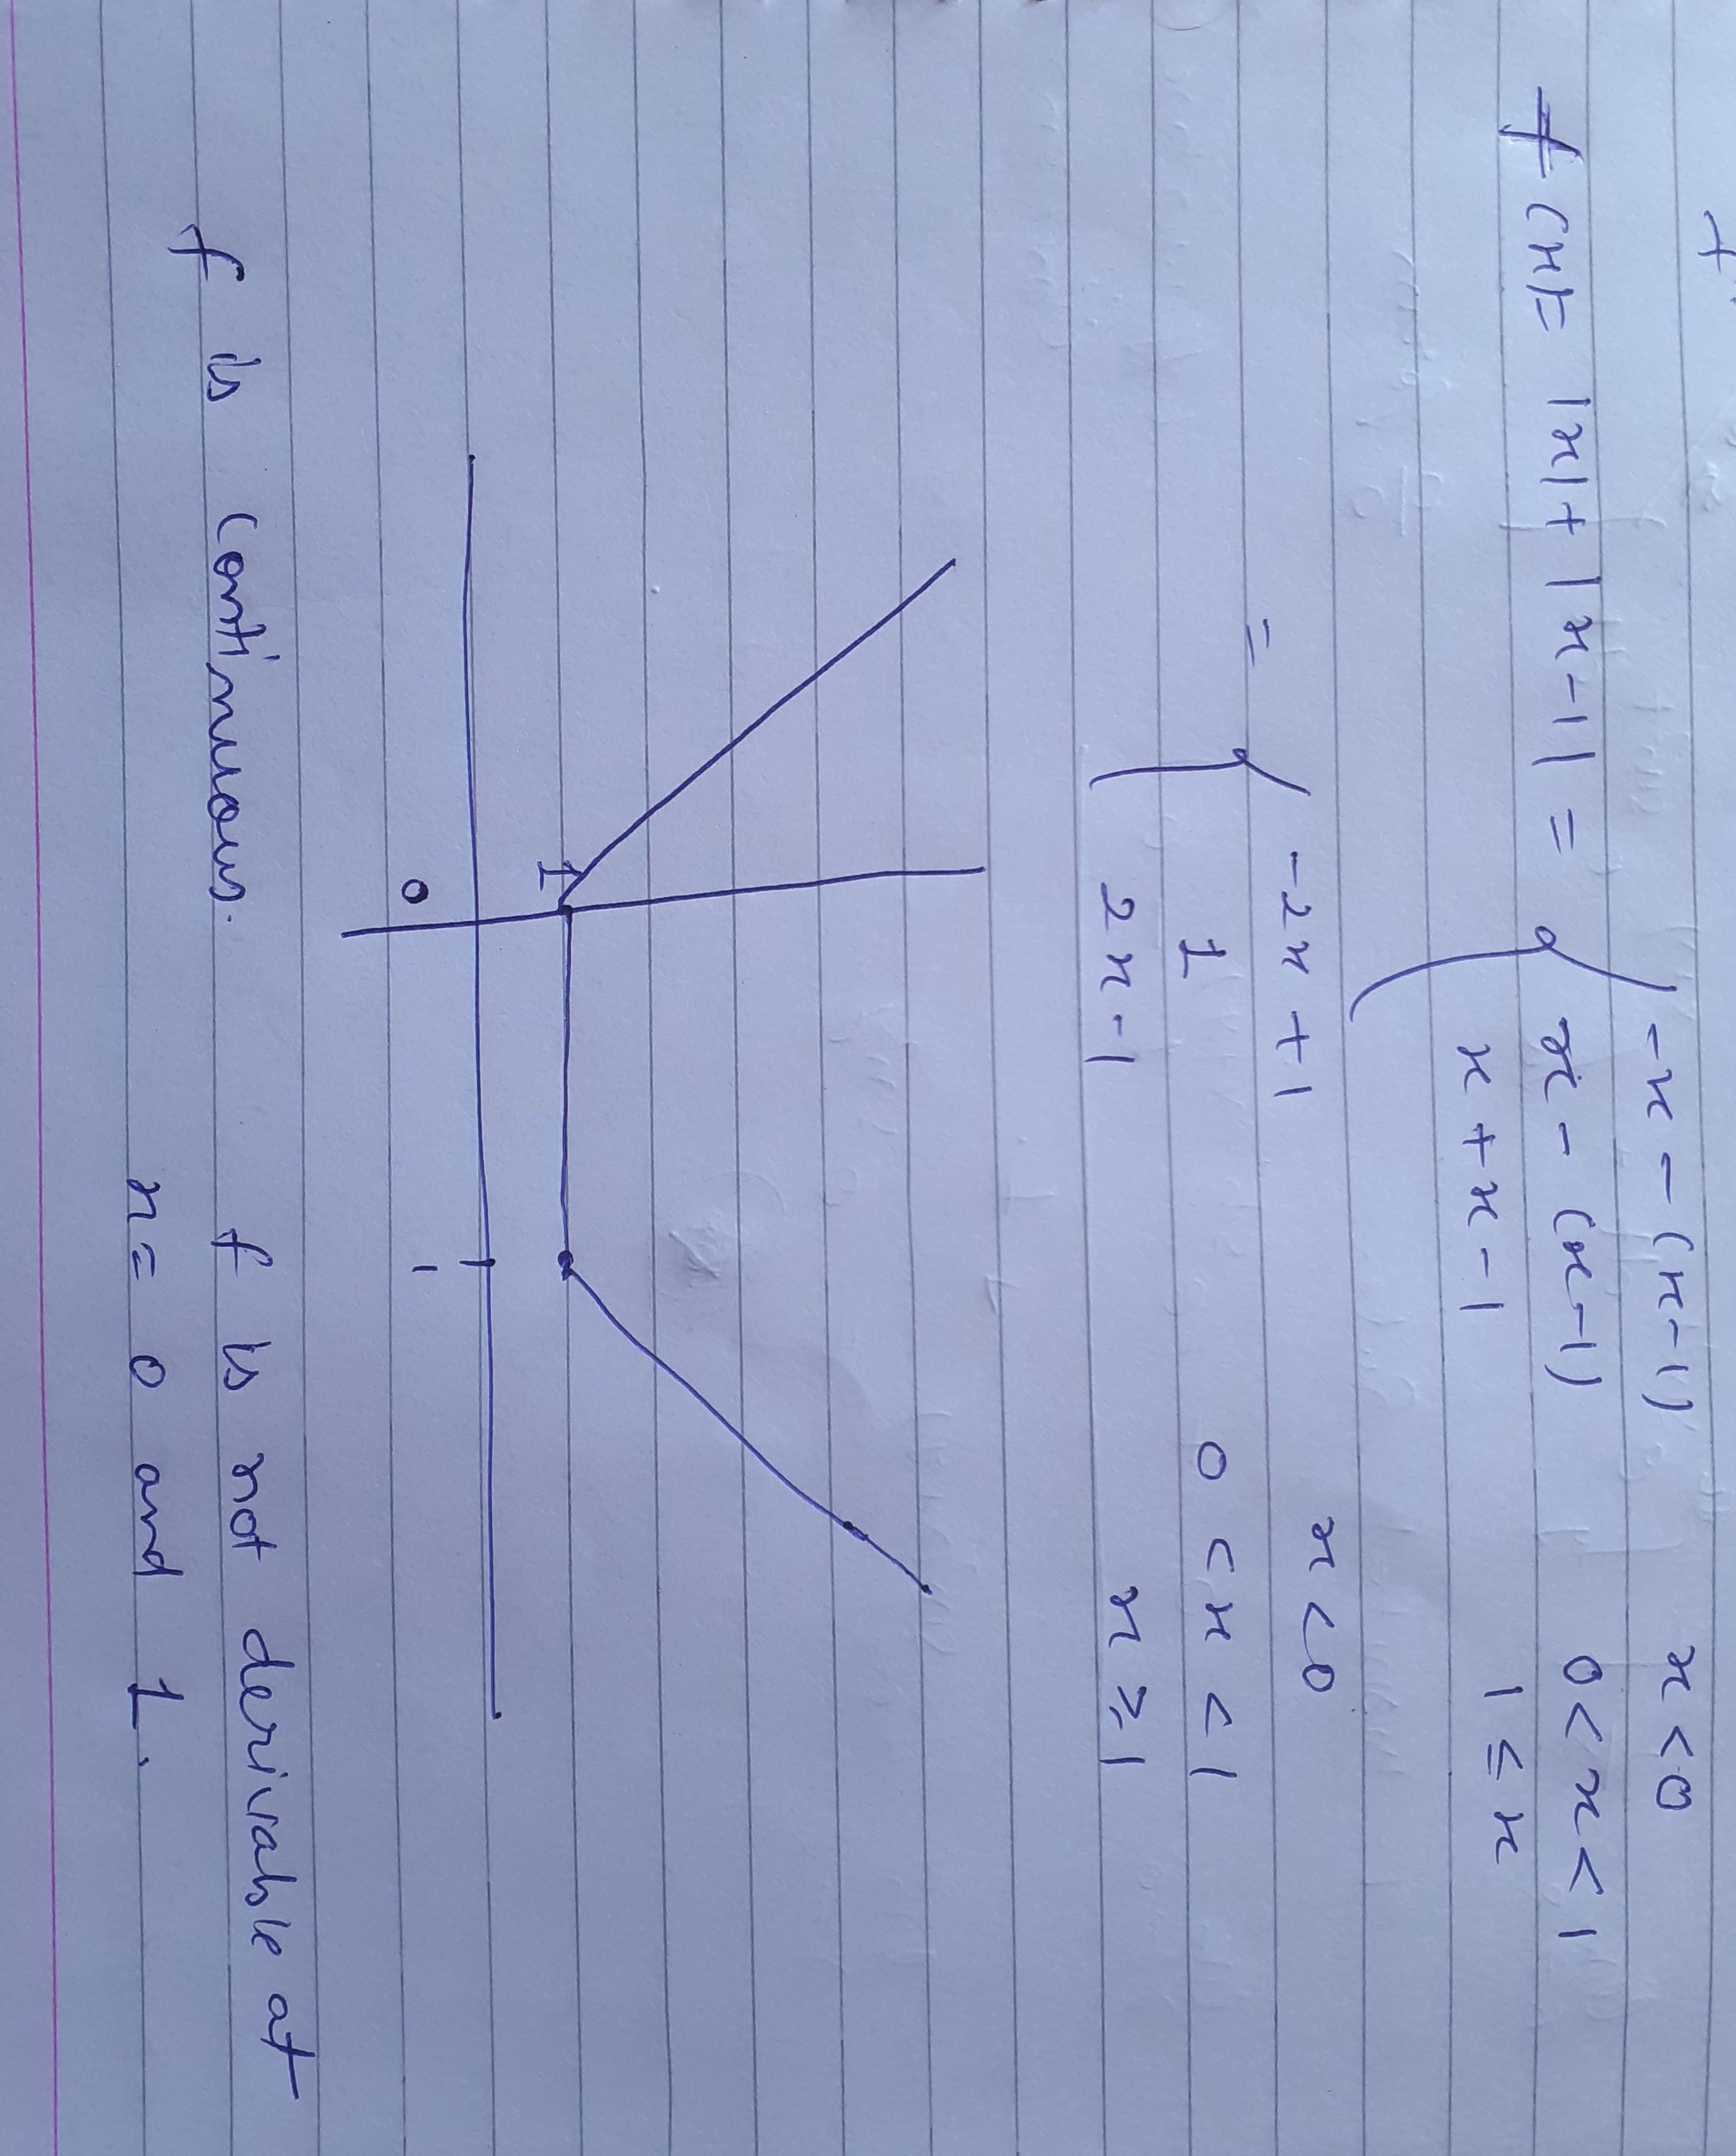 f(x)= |x|+|x-1| = { -x-(x-1) x<0
x-(x-1) 0<x<1
x+x-1 1≤x
= { -2x+1 x<0
1 0<x<1
2x-1 x≥1
1
0 1
f is continuous. f is not derivable at
x= 0 and 1.